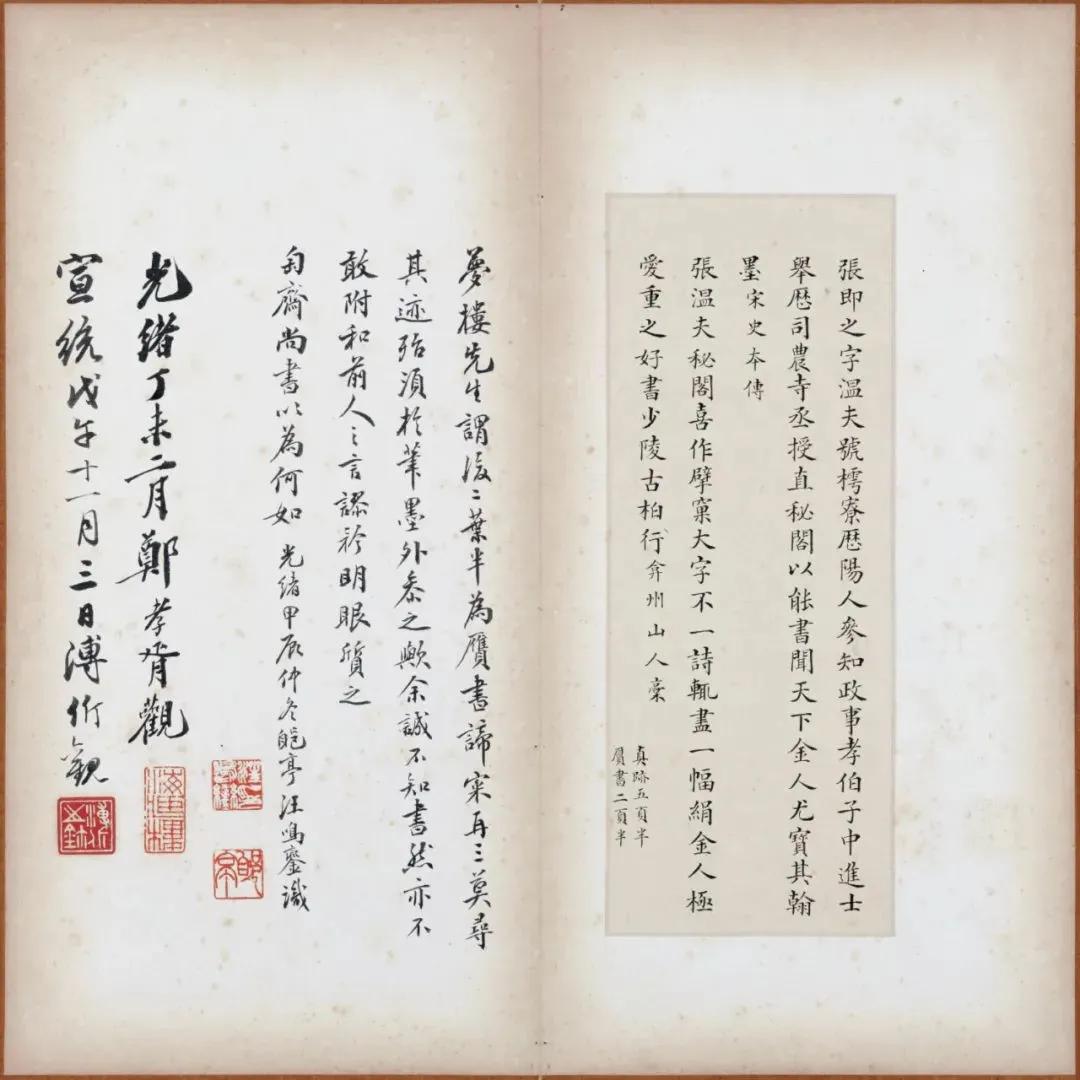 張即之字溫夫號樗寮歷陽人參知政事孝伯子中進士
舉歷司農寺丞授直秘閣以能書聞天下金人尤寶其翰
墨宋史本傳
張溫夫秘閣喜作擘窠大字不一詩輒盡一幅絹金人極
愛重之好書少陵古柏行弇州山人稾
真跡五頁半
贋書二頁半
夢樓先生謂後二葉半為贋書諦宷再三莫尋
其迹殆須於筆墨外叅之歟余誠不知書然亦不
敢附和前人之言謬矜明眼質之
匋齋尚書以為何如 光緒甲辰仲冬郋亭汪鳴鑾識
光緒丁未二月鄭孝胥觀
宣統戊午十一月三日溥伒觀